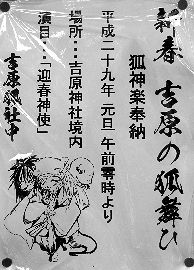 新春 吉原の狐舞ひ
狐神楽奉納
平成二十九年 元旦 午前零時より
場所…吉原神社境内
演目…「迎春神使」
吉原狐社中